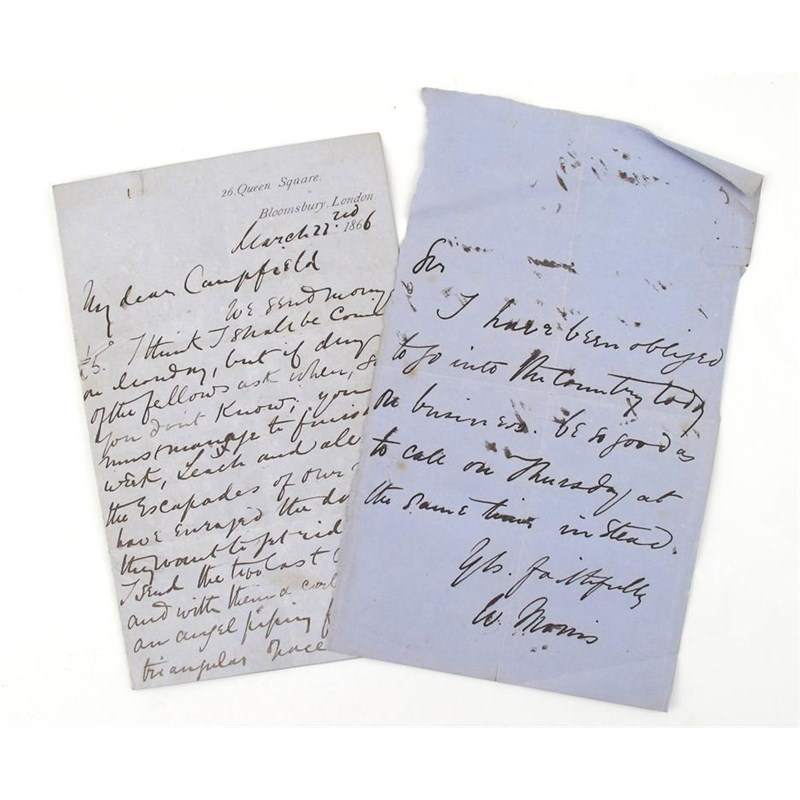 26. Queen Square.
Bloomsbury, London.
March 22nd 1866
My dear Campfield
We send money
I think I shall be
on Monday, but if any
of the fellows ask when,
you don't know; you
must manage to finish
week, Leach and all
the Escapades of our
have enraged the
they want to get rid
I send the two last
and with them a
an angel piping
triangular
Sir
I have been obliged
to go into the Country today
on business. be so good as
to call on Thursday at
the same time instead.
Yrs. faithfully
W. Morris